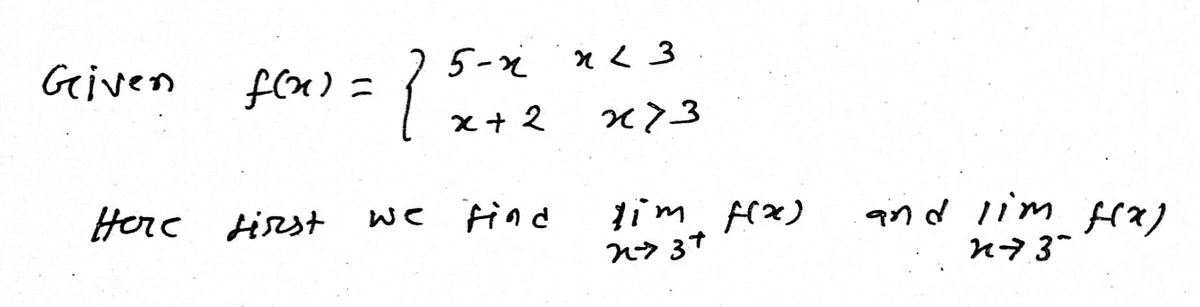 Given f(x) = { 5-x x < 3
x + 2 x > 3
Here first we find lim f(x) and lim f(x)
x→3⁺ x→3⁻